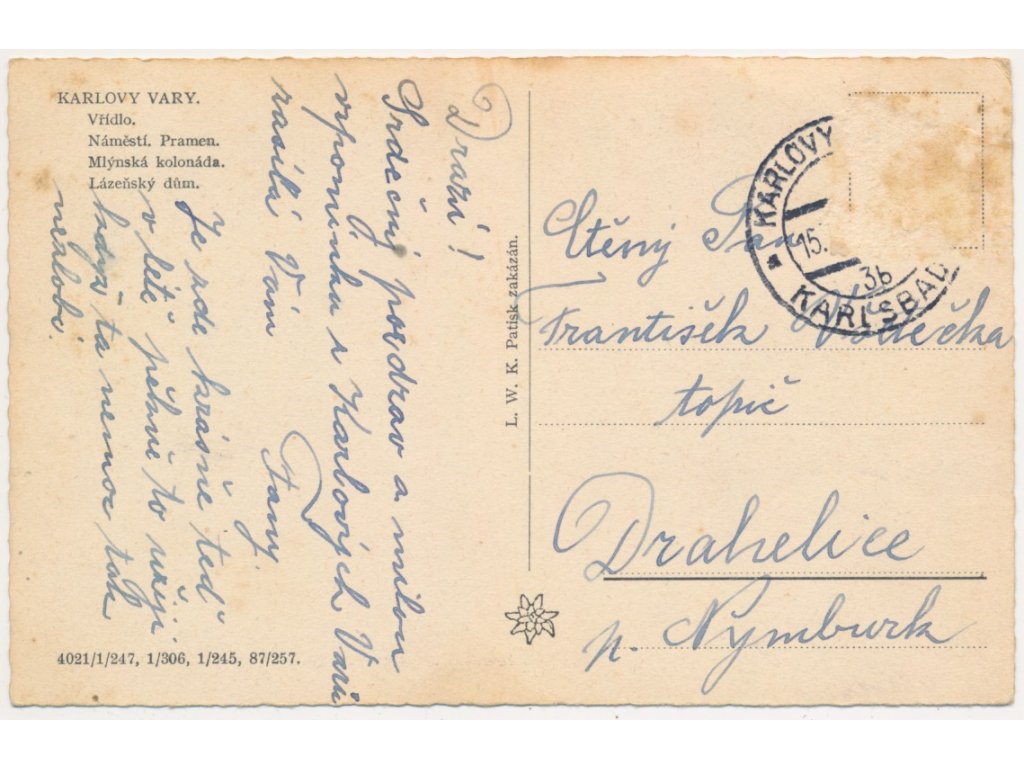 KARLOVY VARY.
Vřídlo.
Náměstí. Pramen.
Mlýnská kolonáda.
Lázeňský dům.
Drazí!
Srdečný pozdrav a milou
vzpomínku z Karlových Varů
zasílá Vám
Fany.
Je zde krásně teď
v létě pěkně to užiji
když ta nemoc tak
nezlobí.
4021/1/247, 1/306, 1/245, 87/257.
L. W. K. Patisk zakázán.
KARLOVY
15.
36
KARLSBAD
Ctěný Pan
František
topič
Drahelice
p. Nymburk